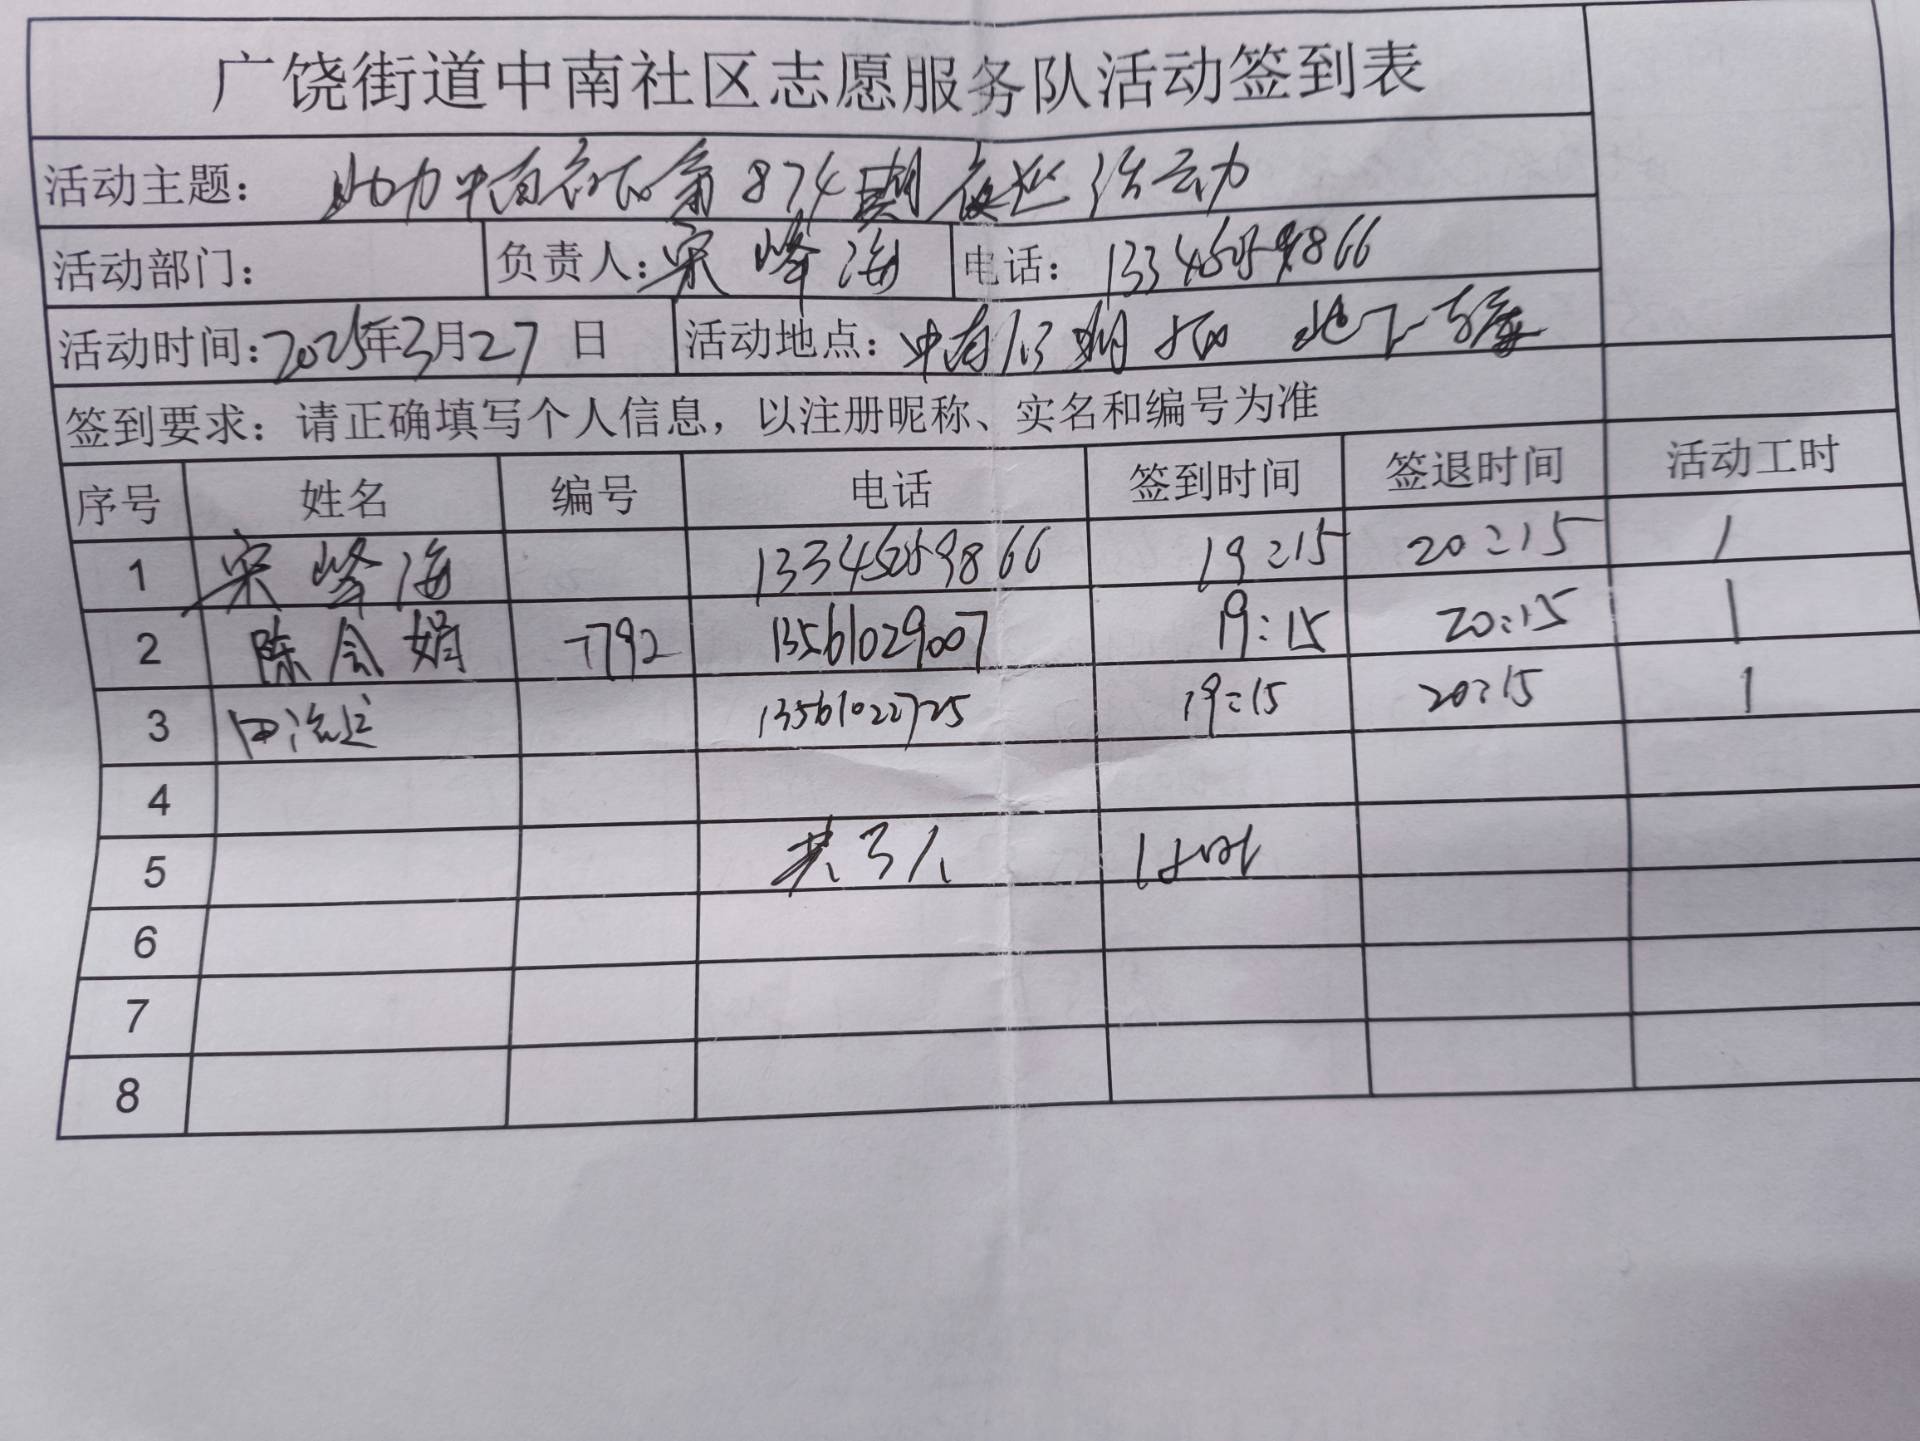 广饶街道中南社区志愿服务队活动签到表
活动主题： 助力中南社区第874期夜巡活动
活动部门： 负责人：宋峰海 电话： 13345059866
活动时间：2025年3月27日 活动地点：中南 1.3期 地下车库
签到要求：请正确填写个人信息，以注册昵称、实名和编号为准
序号 姓名 编号 电话 签到时间 签退时间 活动工时
1 宋峰海 13345059866 19:15 20:15 1
2 陈会娟 7792 13561029007 19:15 20:15 1
3 田 13561022725 19:15 20:15 1
4
5 共3人 1小时
6
7
8